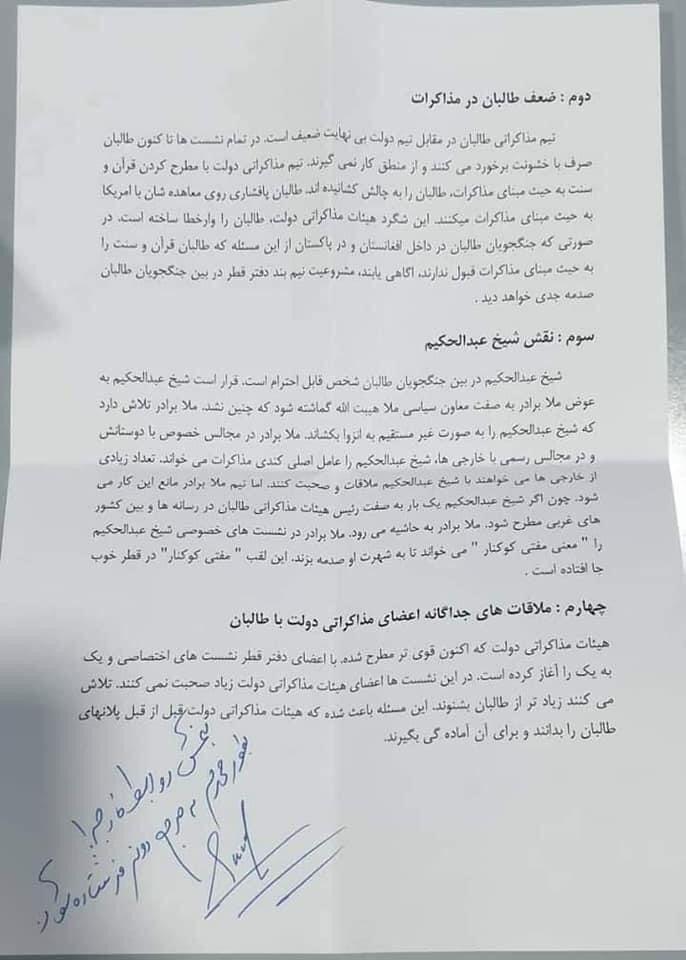 دوم : ضعف طالبان در مذاکرات
تیم مذاکراتی طالبان در مقابل تیم دولت بی نهایت ضعیف است. در تمام نشست ها تا کنون طالبان
صرف با خشونت برخورد می کنند و از منطق کار نمی گیرند. تیم مذاکراتی دولت با مطرح کردن قرآن و
سنت به حیث مبنای مذاکرات، طالبان را به چالش کشانیده اند. طالبان پافشاری روی معاهده شان با امریکا
به حیث مبنای مذاکرات میکنند. این شگرد هیئات مذاکراتی دولت، طالبان را وارخطا ساخته است. در
صورتی که جنگجویان طالبان در داخل افغانستان و در پاکستان از این مسئله که طالبان قرآن و سنت را
به حیث مبنای مذاکرات قبول ندارند، آگاهی یابند، مشروعیت نیم بند دفتر قطر در بین جنگجویان طالبان
صدمه جدی خواهد دید .
سوم : نقش شیخ عبدالحکیم
شیخ عبدالحکیم در بین جنگجویان طالبان شخص قابل احترام است. قرار است شیخ عبدالحکیم به
عوض ملا برادر به صفت معاون سیاسی ملا هیبت الله گماشته شود که چنین نشد. ملا برادر تلاش دارد
که شیخ عبدالحکیم را به صورت غیر مستقیم به انزوا بکشاند. ملا برادر در مجالس خصوص با دوستانش
و در مجالس رسمی با خارجی ها، شیخ عبدالحکیم را عامل اصلی کندی مذاکرات می خواند. تعداد زیادی
از خارجی ها می خواهند با شیخ عبدالحکیم ملاقات و صحبت کنند. اما تیم ملا برادر مانع این کار می
شود. چون اگر شیخ عبدالحکیم یک بار به صفت رئیس هیئات مذاکراتی طالبان در رسانه ها و بین کشور
های غربی مطرح شود. ملا برادر به حاشیه می رود. ملا برادر در نشست های خصوصی شیخ عبدالحکیم
را " معنی مفتی کوکنار " می خواند تا به شهرت او صدمه بزند. این لقب " مفتی کوکنار" در قطر خوب
جا افتاده است .
چهارم : ملاقات های جداگانه اعضای مذاکراتی دولت با طالبان
هیئات مذاکراتی دولت که اکنون قوی تر مطرح شده، با اعضای دفتر قطر نشست های اختصاصی و یک
به یک را آغاز کرده است. در این نشست ها اعضای هیئات مذاکراتی دولت زیاد صحبت نمی کنند. تلاش
می کنند زیاد تر از طالبان بشنوند. این مسئله باعث شده که هیئات مذاکراتی دولت قبل از قبل پلانهای
طالبان را بدانند و برای آن آماده گی بگیرند.
بخش روابط خارجی!
بطور محرم به مرجع دوم فرستاده شود.